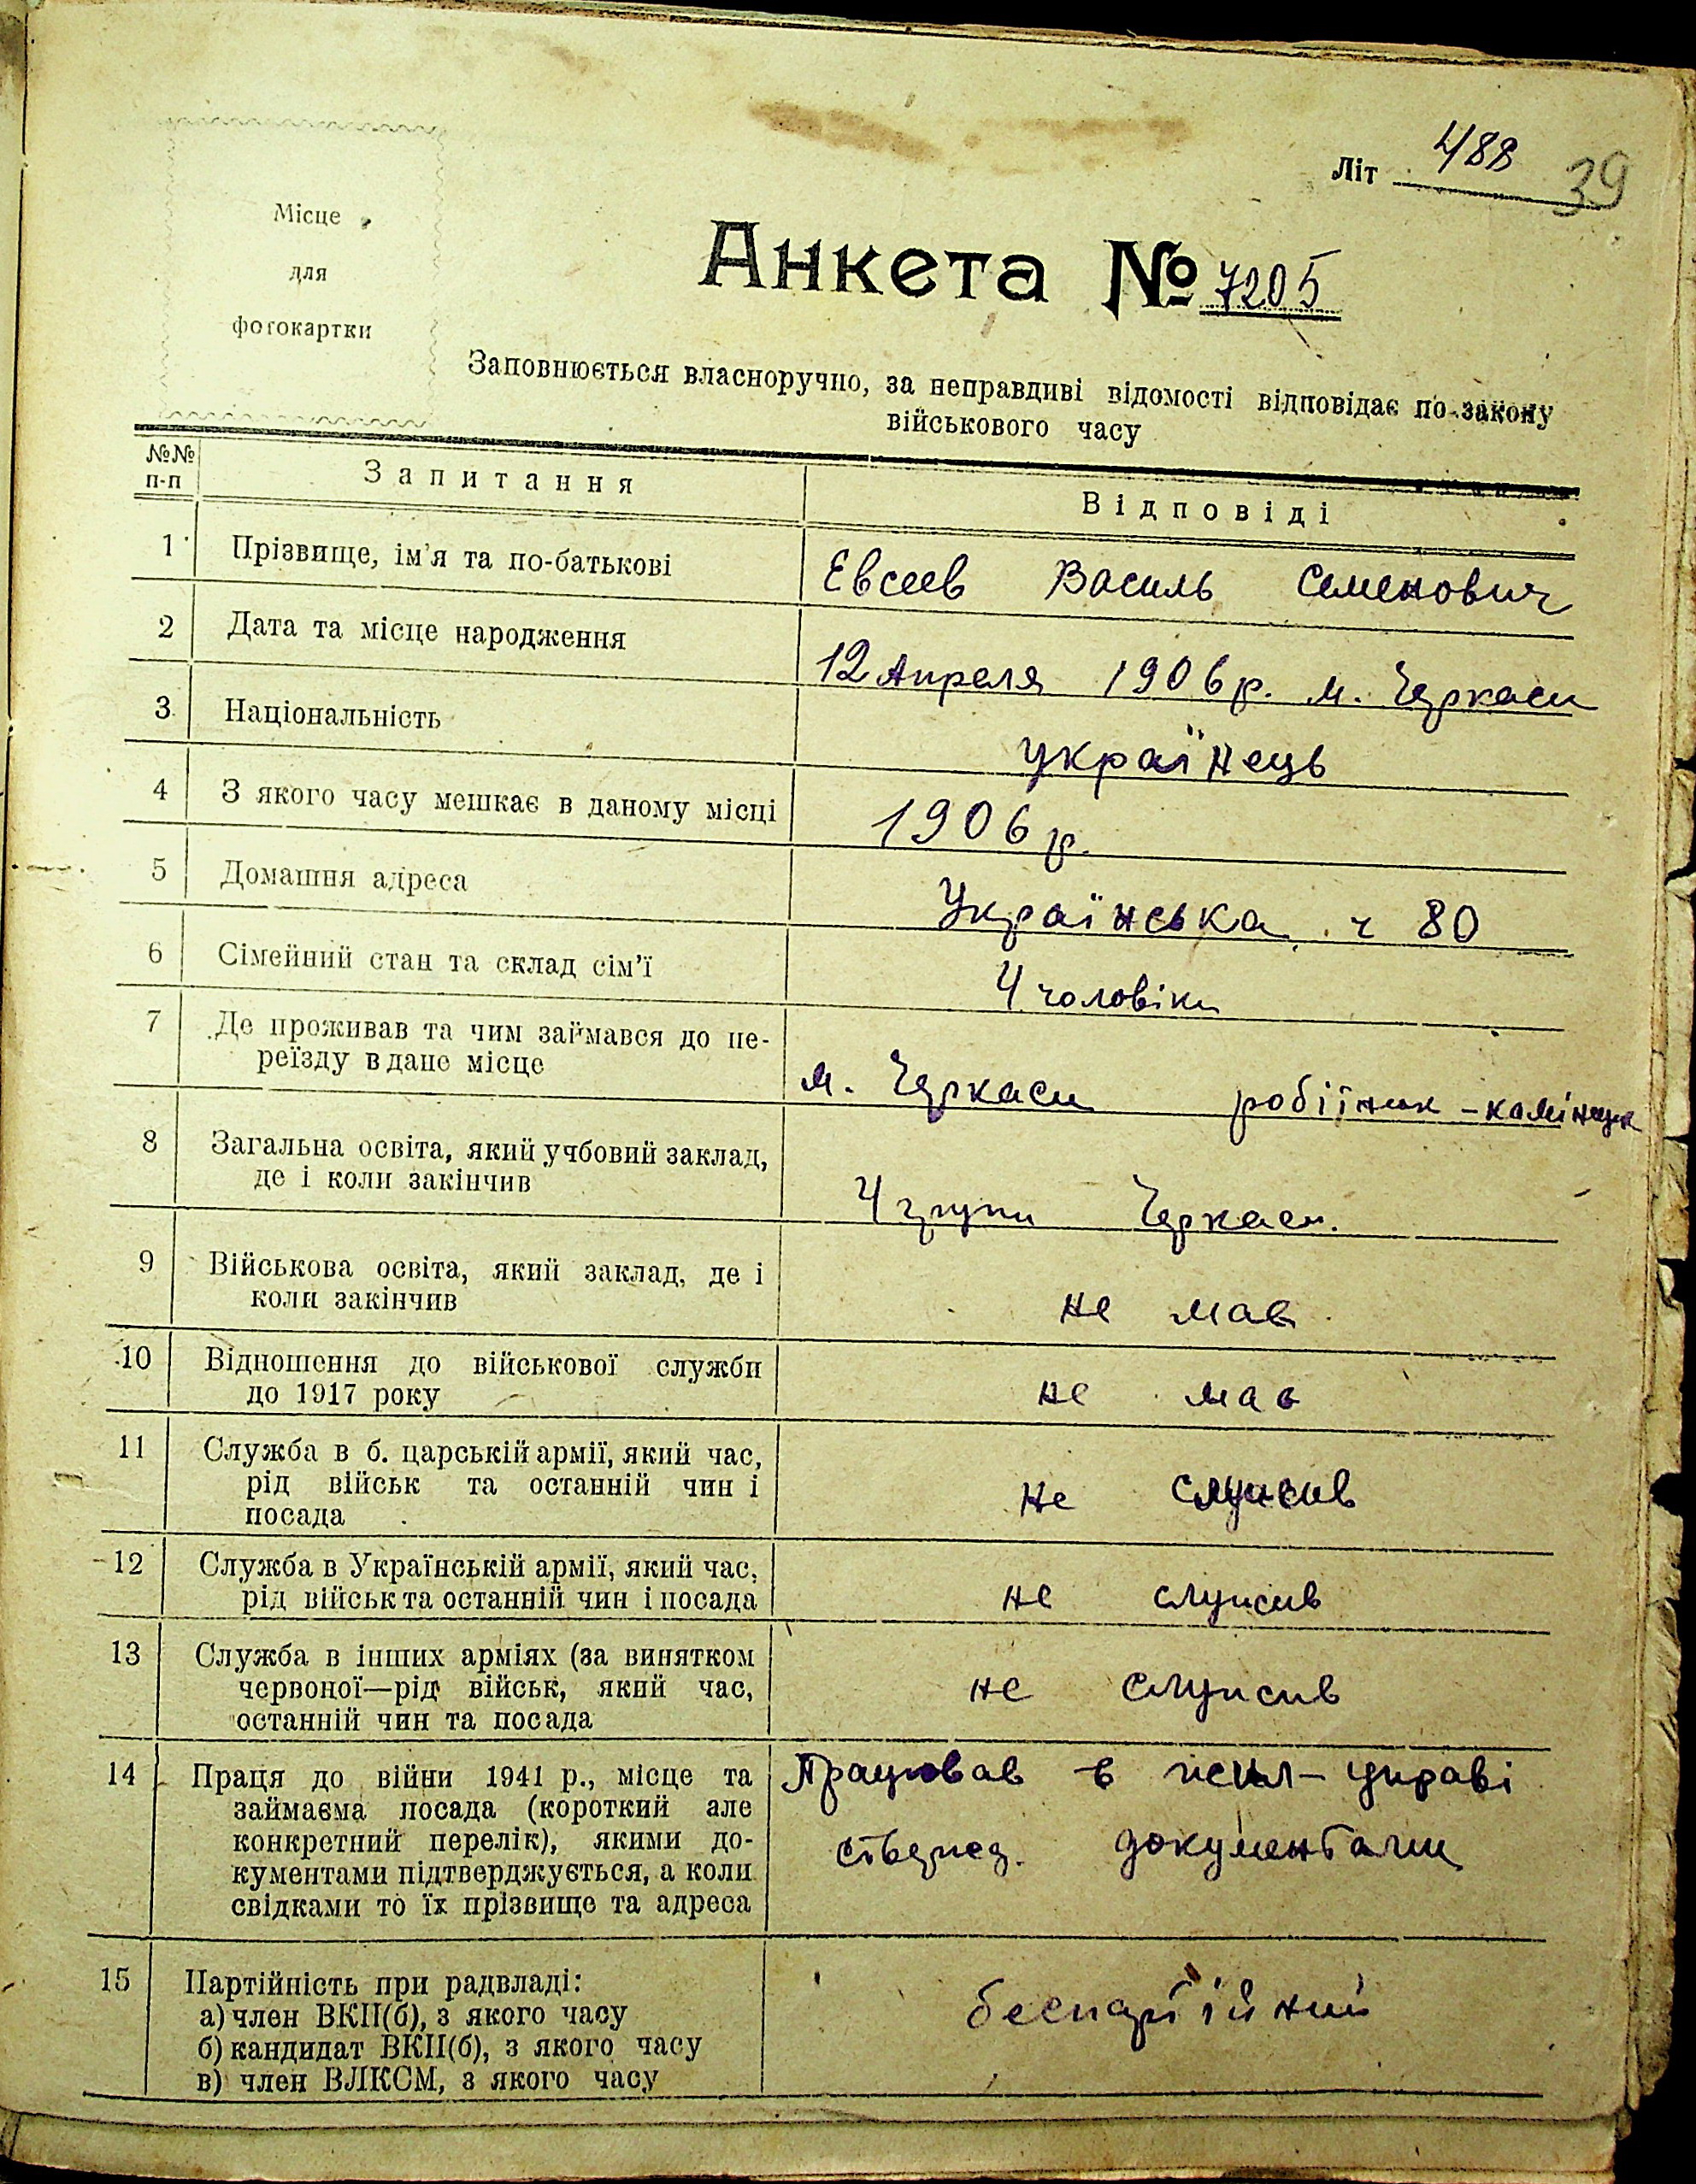 Літ 488 39
Місце
для
фотокартки
Анкета № 7205
Заповнюється власноручно, за неправдиві відомості відповідає по закону
військового часу
№№ п-п Запитання Відповіді
1 Прізвище, ім'я та по-батькові Евсеев Василь Семенович
2 Дата та місце народження 12 Апреля 1906 р. м. Черкаси
3 Національність українець
4 З якого часу мешкає в даному місці 1906 р.
5 Домашня адреса Українська ч 80
6 Сімейний стан та склад сім'ї 4 чоловіки
7 Де проживав та чим займався до пе-
реїзду в дане місце м. Черкаси
8 Загальна освіта, який учбовий заклад,
де і коли закінчив 4 групи Черкаси.
9 Військова освіта, який заклад, де і
коли закінчив не мав
10 Відношення до військової служби
до 1917 року не мав
11 Служба в б. царській армії, який час,
рід військ та останній чин і
посада не служив
12 Служба в Українській армії, який час,
рід військ та останній чин і посада не служив
13 Служба в інших арміях (за винятком
червоної—рід військ, який час,
останній чин та посада не служив
14 Праця до війни 1941 р., місце та Працював в управі
займаєма посада (короткий але
конкретний перелік), якими до- документами
кументами підтверджується, а коли
свідками то їх прізвище та адреса
15 Партійність при радвладі: беспартійний
а) член ВКП(б), з якого часу
б) кандидат ВКП(б), з якого часу
в) член ВЛКСМ, з якого часу